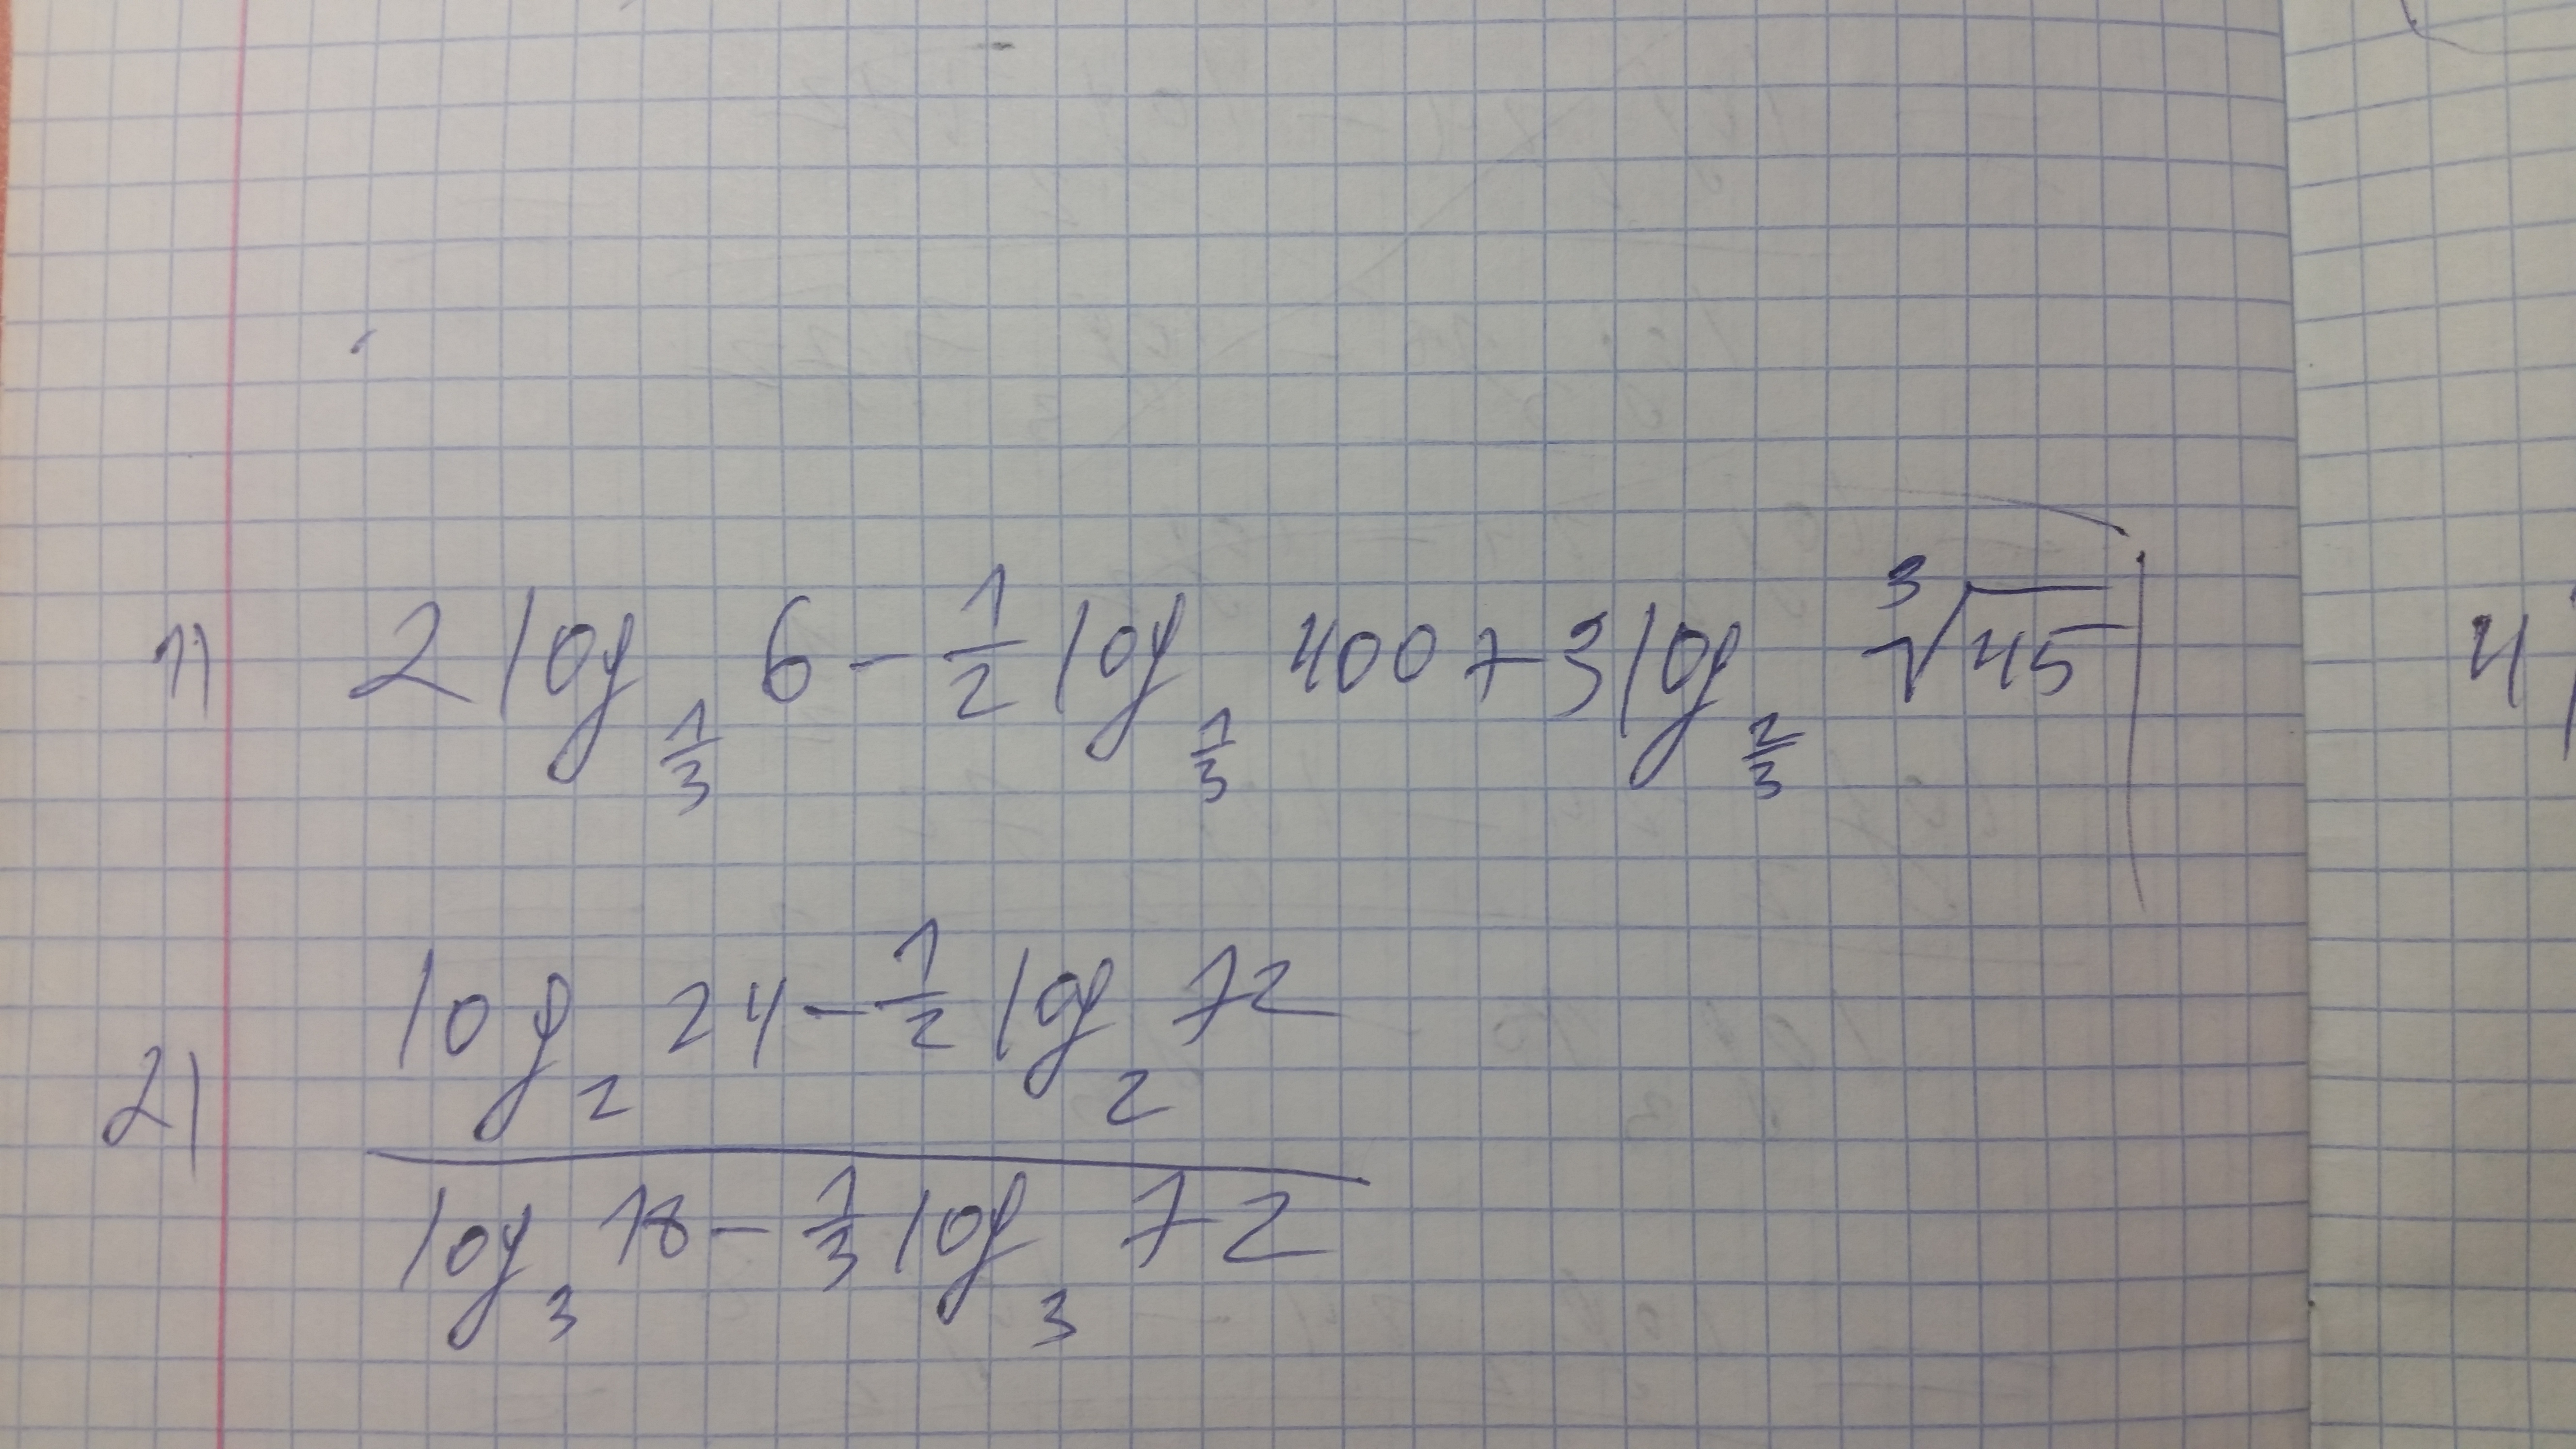 1) 2 log_{1/3} 6 - 1/2 log_{1/3} 400 + 3 log_{2/3} ∛45
4)
2) (log_2 24 - 1/2 log_2 72) / (log_3 18 - 1/3 log_3 72)